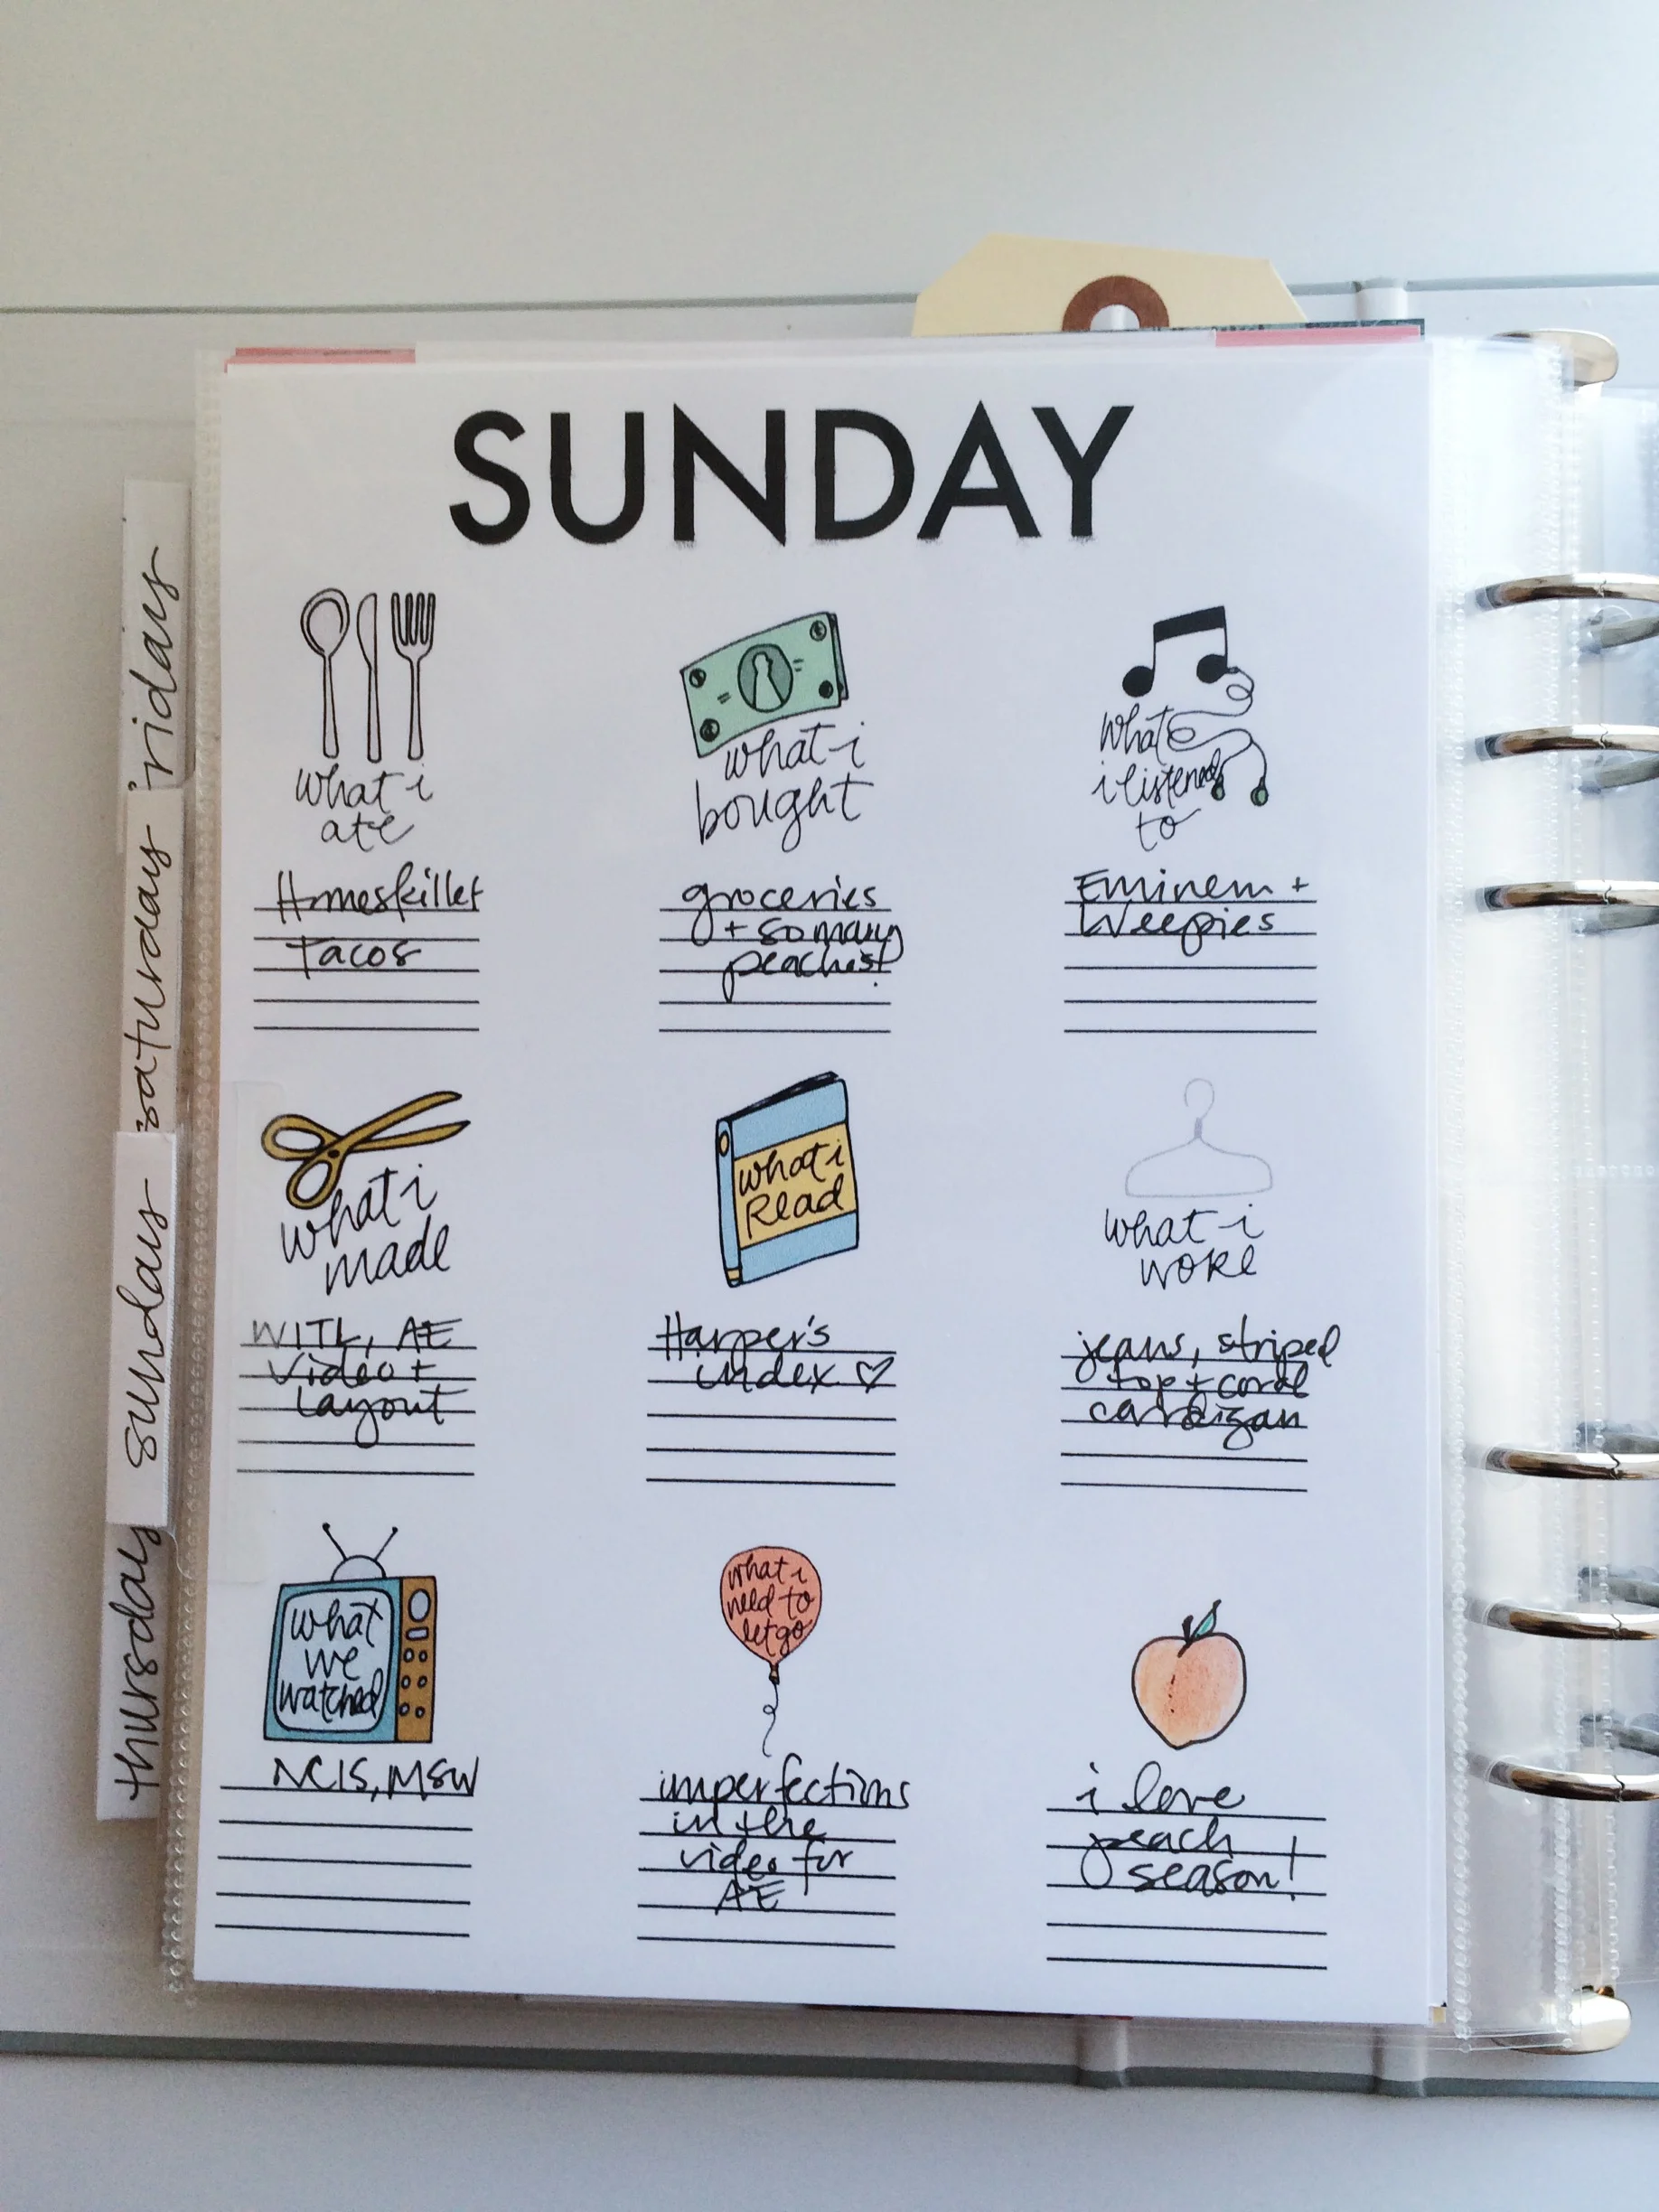 SUNDAY
what i
ate
Homeskillet
Tacos
what i
bought
groceries
+ so many
peaches!
what
i listened
to
Eminem +
Weepies
what i
made
WITL, AE
video +
Layout
what i
Read
Harper's
index ♡
what i
wore
jeans, striped
top + coral
cardigan
what
we
watched
NCIS, MSW
what i
need to
let go
imperfections
in the
video for
AE
i love
peach
season!
friday
saturday
sunday
thursday